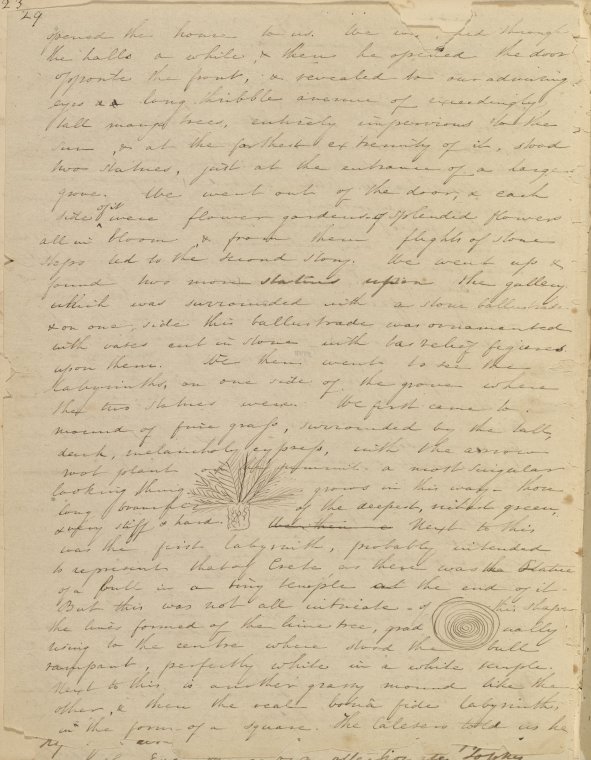 23
29
opened the house to us. We
the halls a while, & then he opened the door
opposite the front, & revealed to our admiring
eyes a long tribble avenue of exceedingly
tall mango trees, entirely impervious to the
sun, & at the farthest extremity of it, stood
two statues, just at the entrance of a large
grove. We went out of the door, & each
side of it were flower gardens, of splendid flowers
all in bloom, & from them flights of stone
steps led to the second story. We went up &
found two more statues upon the gallery
which was surrounded with a stone ballustrade
& on one side this ballustrade was ornamented
with vases cut in stone with bas relief figures
upon them. We then went to see the
labyrinths, on one side of the grove where
the two statues were. We first came to
mound of fine grass, surrounded by the tall,
dark, melancholy cypress, with the arrow
root plant summit. a most singular
looking thing grows in this way – those
long branches of the deepest, richest green,
& very stiff & hard. Next to this
was the first labyrinth, probably intended
to represent that of Crete as there was the statue
of a bull in a tiny temple at the end of it.
But this was not all intricate – of this shape
the lines formed of the lime tree, grad ually
rising to the centre where stood the bull
rampant, perfectly white in a white temple.
Next to this is another grassy mound like the
other, & then the real bona fide labyrinth,
in the form of a square. The calesero told us he